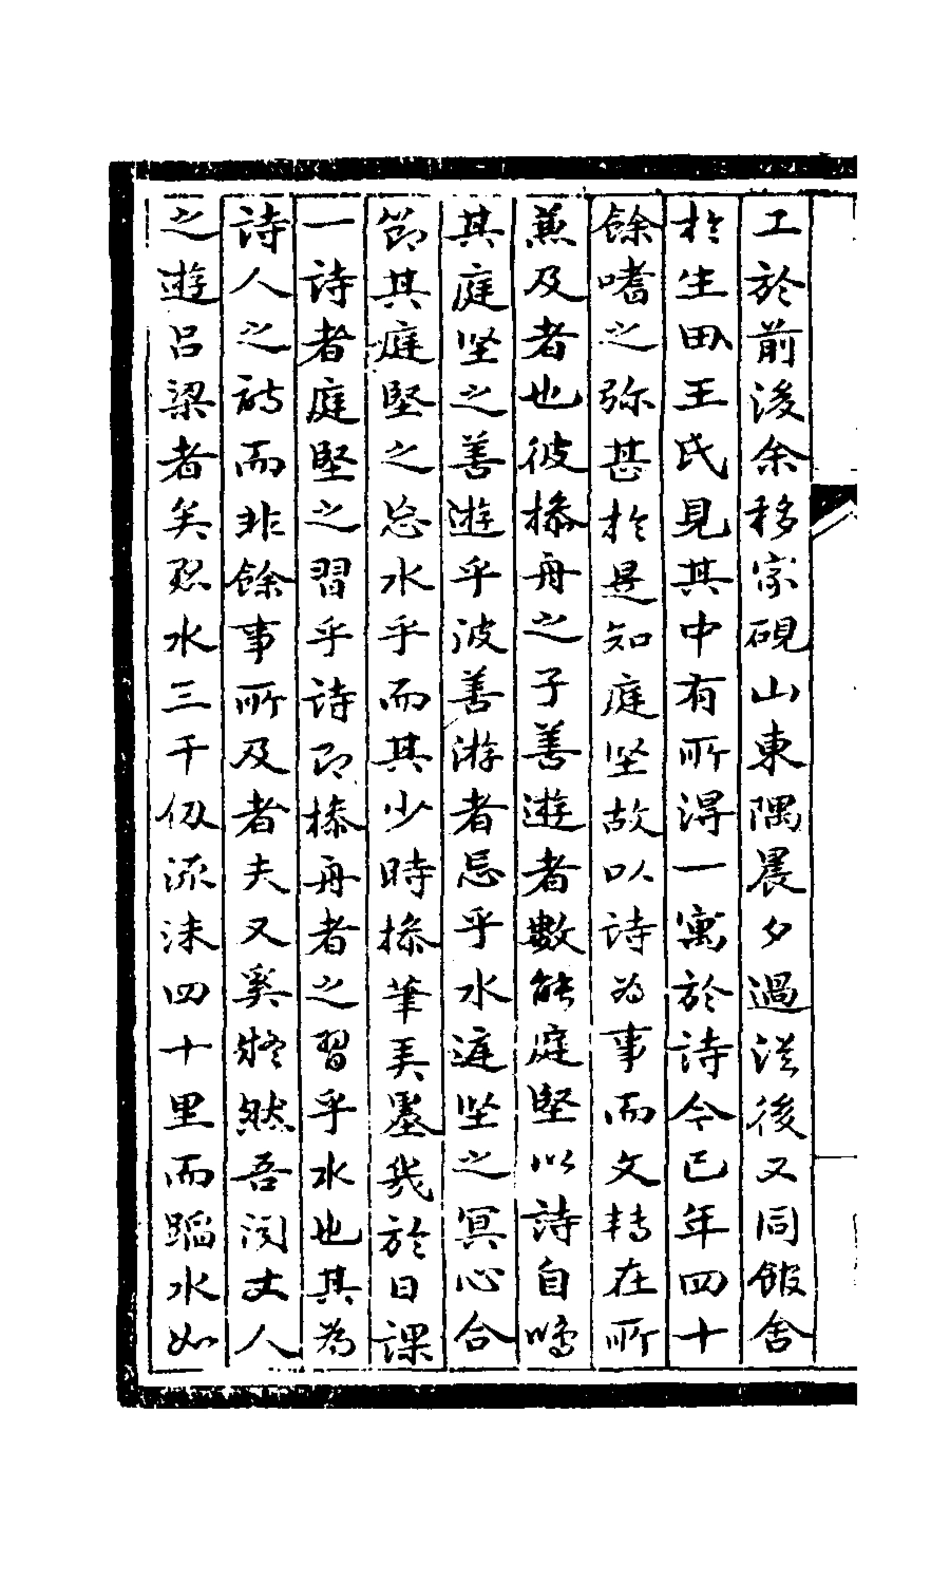 工於前後余移家硯山東隅晨夕過從後又同館舍
於生田王氏見其中有所得一寓於詩今已年四十
餘嗜之弥甚於是知庭坚故以詩为事而文特在所
蕙及者也彼搡舟之子善遊者數能庭堅以詩自鳴
其庭坚之善遊乎波善游者忌乎水庭坚之冥心合
節其庭堅之忘水乎而其少時搡筆美墨我於日課
一詩者庭堅之習乎詩即搡舟者之習乎水也其為
詩人之詩而非餘事所及者夫又奚疑然吾闻丈人
之遊吕梁者矣縣水三千仭流沫四十里而蹈水如